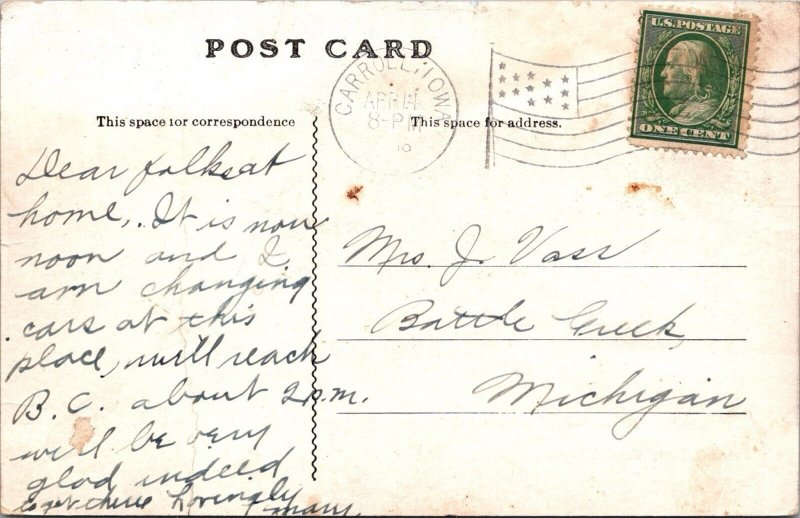 POST CARD
CARROLL, IOWA
APR 14
8-PM
U.S. POSTAGE
ONE CENT
This space for correspondence
This space for address.
Dear folks at
home, . It is now
noon and I
am changing
cars at this
place, will reach
B. C. about 2 p.m.
will be very
glad indeed
to get there Lovingly
Mary.
Mrs. J. Vass
Battle Creek,
Michigan